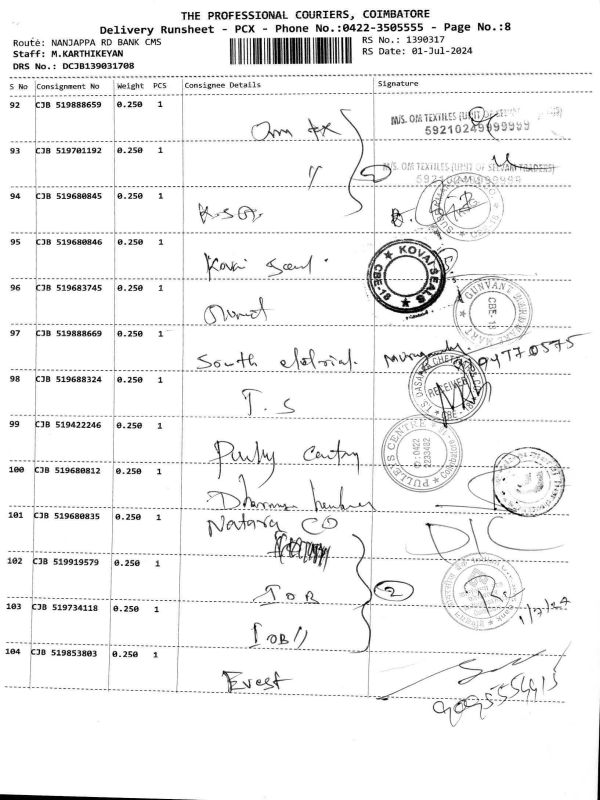 THE PROFESSIONAL COURIERS, COIMBATORE
Delivery Runsheet - PCX - Phone No.:0422-3505555 - Page No.:8
Route: NANJAPPA RD BANK CMS
RS No.: 1390317
Staff: M.KARTHIKEYAN
RS Date: 01-Jul-2024
DRS No.: DCJB139031708
S No Consignment No Weight PCS Consignee Details Signature
92 CJB 519888659 0.250 1
Om tex
M/S. OM TEXTILES
93 CJB 519701192 0.250 1
〃
M/S. OM TEXTILES (UNIT OF SELVAM TRADERS)
94 CJB 519680845 0.250 1
95 CJB 519680846 0.250 1
Kovai Seal
KOVAI SEALS
CBE-18
96 CJB 519683745 0.250 1
GUNVANT
CBE-18
97 CJB 519888669 0.250 1
South
98 CJB 519688324 0.250 1
T.S
RECEIVED
99 CJB 519422246 0.250 1
PULLEYS CENTRE
0422
2233482
100 CJB 519680812 0.250 1
101 CJB 519680835 0.250 1
Natara CO
102 CJB 519919579 0.250 1
IOB
2
103 CJB 519734118 0.250 1
IOB 〃
1/7/24
104 CJB 519853803 0.250 1
Evest